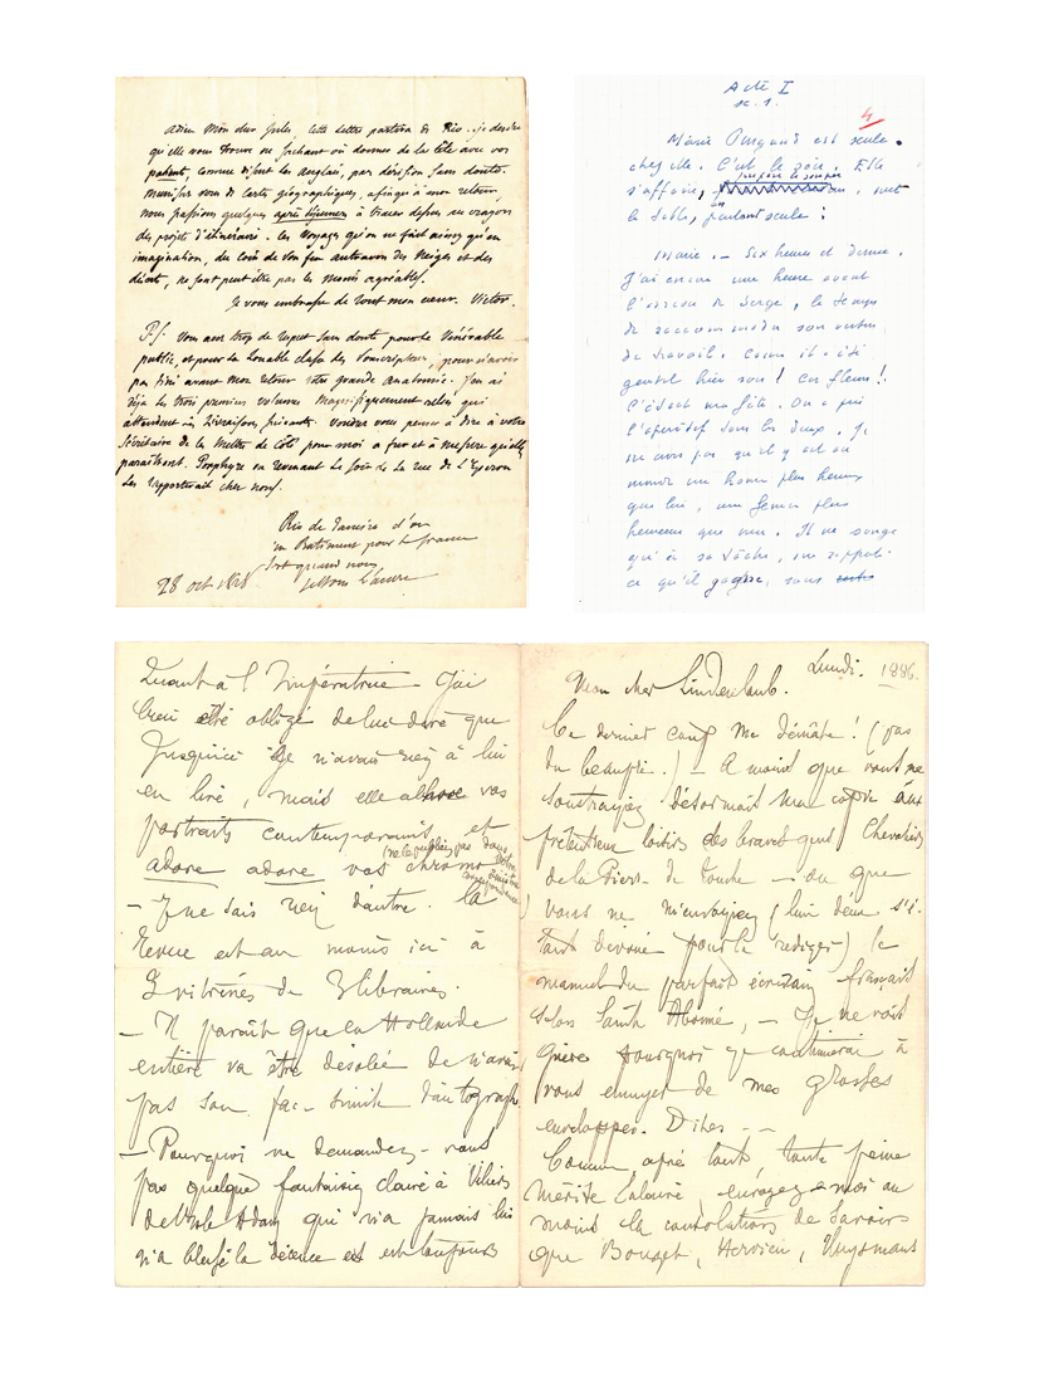 adieu mon cher Jules, cette lettre partira de Rio. je desire
qu'elle vous trouve ne sachant où donner de la tête avec vos
patient, comme disent les anglais, par dérision sans doute.
munissez vous de cartes géographiques, afin qu'à mon retour
nous passions quelques après déjeuners à tracer dessus au crayon
des projets d'itinéraire. les voyages qu'on ne fait ainsi qu'en
imagination, du coin de son feu au travers des neiges et des
déserts, ne sont peut être pas les moins agréables.
Je vous embrasse de tout mon cœur. Victor.
P.S. vous avez trop de respect sans doute pour le vénérable
public, et pour la louable classe des souscripteurs, pour n'avoir
pas fini avant mon retour votre grande anatomie. J'en ai
déja les trois premiers volumes magnifiquement reliés qui
attendent les livraisons suivantes. voudrez vous penser à dire à votre
sécrétaire de la mettre de côté pour moi a fur et à mesure qu'elles
paraîtront. Porphyre en revenant le soir de la rue de l'
les rapporterait chez nous.
Rio de Janeiro d'ou
un Batiment pour la france
sort quand nous
jettons l'ancre
28 oct 1828
Acte I
sc. 1.
4
Marie est seule.
chez elle. C'est le soir. Elle
prépare le souper
s'affaire, met
la table, parlant seule :
Marie. — Six heures et demie.
J'ai encore une heure avant
l'arrivée de Serge, le temps
de raccommoder son veston
de travail. Comme il a été
gentil hier soir ! Ces fleurs !
C'était ma fête. On a pris
l'apéritif tous les deux. Je
ne crois pas qu'il y ait au
monde un homme plus heureux
que lui, une femme plus
heureuse que moi. Il ne songe
qu'à sa tâche, me rappor-
te ce qu'il gagne, sans
Quant à l'Impératrice – j'ai
bien été obligé de lui dire que
jusqu'ici je n'avais rien à lui
en lire, mais elle abhorre vos
portraits contemporains, et
adore adore vos chromos
(ne le publiez pas dans votre
correspondance
— Je ne sais rien d'autre. la
Revue est au moins ici à
3 vitrines de 3 libraires.
— Il paraît que la Hollande
entière va être désolée de n'avoir
pas son fac-simile d'autographe
— Pourquoi ne demandez-vous
pas quelque fantaisie claire à Villiers
de l'Isle Adam qui n'a jamais lui
n'a blessé la décence et est toujours
Lundi. 1886.
Mon cher Lindenlaub.
Ce dernier coup me démâte ! (pas
du beaupré.) – A moins que vous ne
soustrayiez désormais ma copie aux
prétentieux loisirs des braves gens Chevaliers
de la Pierre de touche – ou que
vous ne m'envoyiez (lui même s'é-
tant dévoué pour le rédiger) le
manuel du parfait écrivain français
selon Sainte , — Je ne vois
guère pourquoi je continuerai à
vous ennuyer de mes grosses
enveloppes. Dites - -
Comme, après tout, toute peine
mérite salaire, envoyez-moi au
moins la consolation de savoir
que Bourget, Hervieu, Huysmans